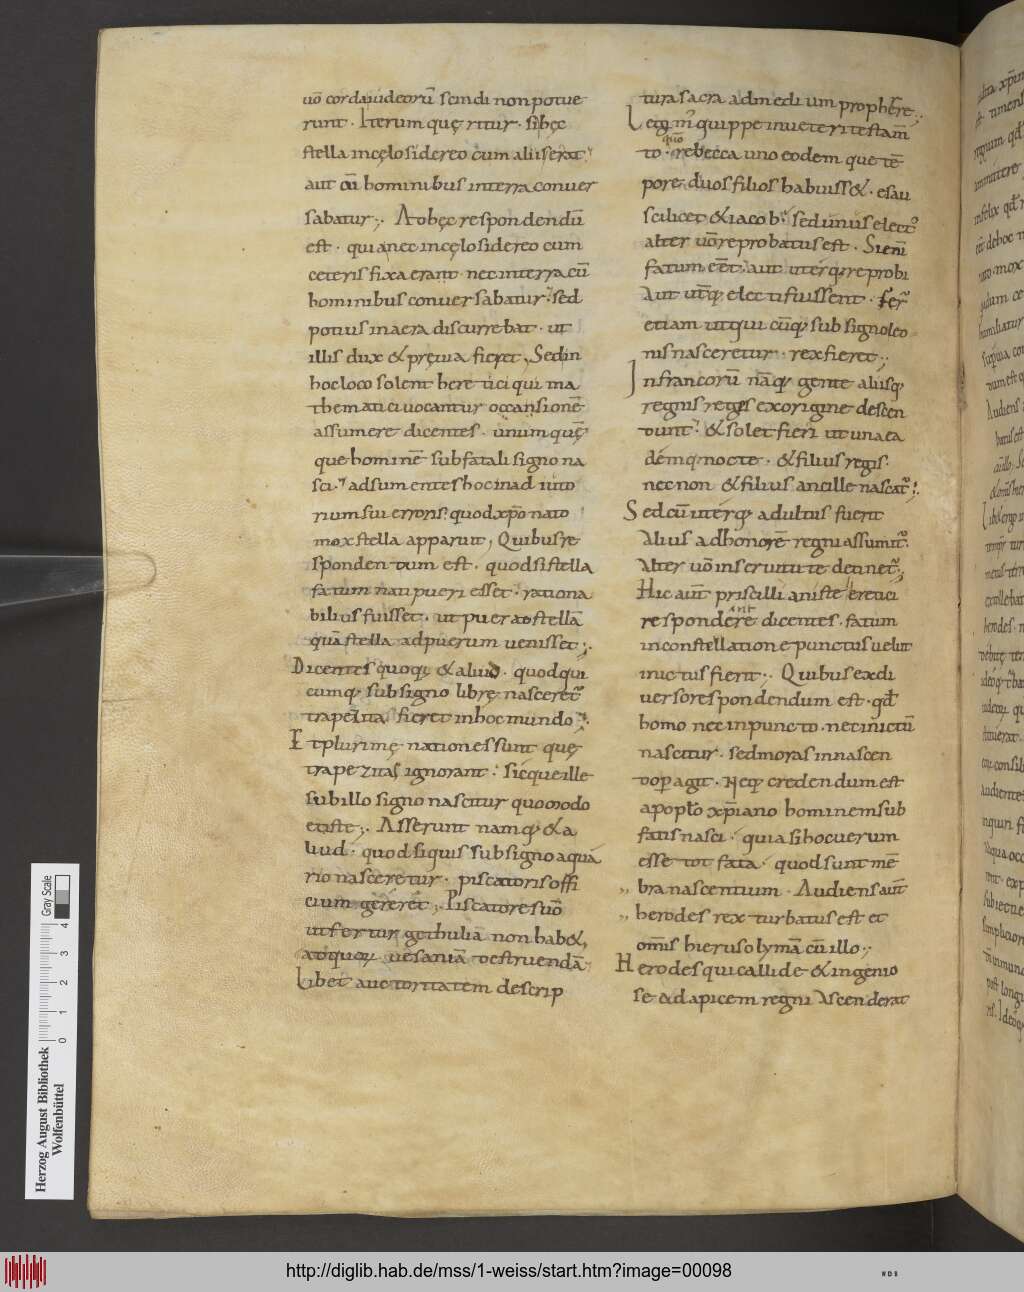 uō cordaiudeorū scindi non potue
runt · Iterum quęritur · si hęc
stella incęlo sidereo cum aliis erat
aut cū hominibus interra conuer
sabatur ;, Adhęc respondendū
est · quia nec incęlo sidereo cum
ceteris fixa erant nec interra cū
hominibus conuersabatur · sed
potius inaera discurrebat · ut
illis dux & pręuia fieret, Sedin
hocloco solent heretici qui ma
thematici uocantur occansionē
assumere dicentes · unumquę̄
que hominē subfatali signo na
sci · adsumentes hoc inad iuto
rium sui erroris quod xp̄o nato
mox stella apparuit, Quibus re
spondendum est · quod si stella
fatum nati pueri esset · rationa
bilius fuisset · ut puer ad stellā
quā stella adpuerum uenisset ;.
Dicentes quoq; & aliud · quod qui
cumq; subsigno librę nasceret᷑
trapezita fieret inhoc mundo ;.
Et plurimę nationes sunt quę
trapezitas ignorant · sicque ille
subillo signo nascitur quomodo
et iste ;. Asserunt namq; & a
liud · quod siquis subsigno aqua
rio nasceretur · piscatoris offi
cium gereret ;, Piscatores uō
ut fertur gethuliā non hab&,
adquorum uesaniā destruendā
Libet auctoritatem descrip
tura sacra admedium prophērre ;,
Legim᷑ quippe inueteri testam̄
to · quō rebecca uno eodem que tē
pore duos filios habuiss& · esau
scilicet & iacob · sed unus elect᷑
alter uō reprobatus est · Si eni
fatum eēt · aut uterq; reprobi
Aut ut̄q; electi fuissent · Fer᷑
etiam ut qui cūq; sub signo leo
nis nasceretur · rex fieret ;,
Infrancorū nāq; gente aliisq;
regnis reges exorigine descen
dunt · & solet fieri ut una ea
demq; nocte · & filius regis ·
nec non & filius ancille nascat᷑ ;.
Sed cū uterq; adultus fuerit
Alius adhonorē regni assumit᷑ ·
Alter uō inseruitute detinet᷑ ;,
Hic aut̄ priscillianiste heretici
respondere dicentes · fatum
inconstellatione punctus uelut
inictus fierit ;. Quibus exdi
uerso respondendum est · qd̄
homo nec inpuncto · nec inictū
nascitur · sed moras innascen
do ꝑagit · Neq; credendum est
a popl̄o xp̄iano hominem sub
fatis nasci · quia si hoc uerum
esse tot fata · quod sunt mē
,, bra nascentium · Audiens aut̄
,, herodes rex turbatus est et
om̄is hierusolymā cū illo ;,
Herodes qui callide & ingenio
se ad apicem regni Ascenderat
Herzog August Bibliothek
Wolfenbüttel
0 1 2 3 4
Gray Scale
http://diglib.hab.de/mss/1-weiss/start.htm?image=00098